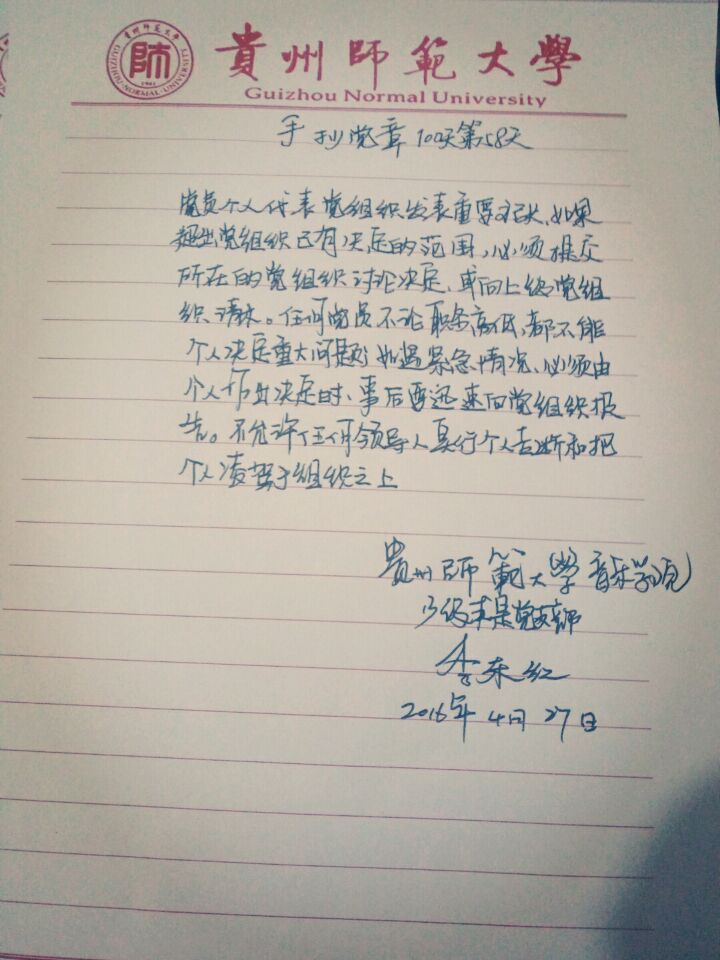 師
GUIZHOU·NORMAL·UNIVERSITY
1941
貴州師範大學
Guizhou Normal University
手抄党章100天第58天
党员个人代表党组织发表重要主张,如果
超出党组织已有决定的范围,必须提交
所在的党组织讨论决定,或向上级党组
织请求。任何党员不论职务高低,都不能
个人决定重大问题;如遇紧急情况,必须由
个人作出决定时,事后要迅速向党组织报
告。不允许任何领导人实行个人专断和把
个人凌驾于组织之上
貴州師範大學音乐学院
13级本
李东红
2016年4月27日